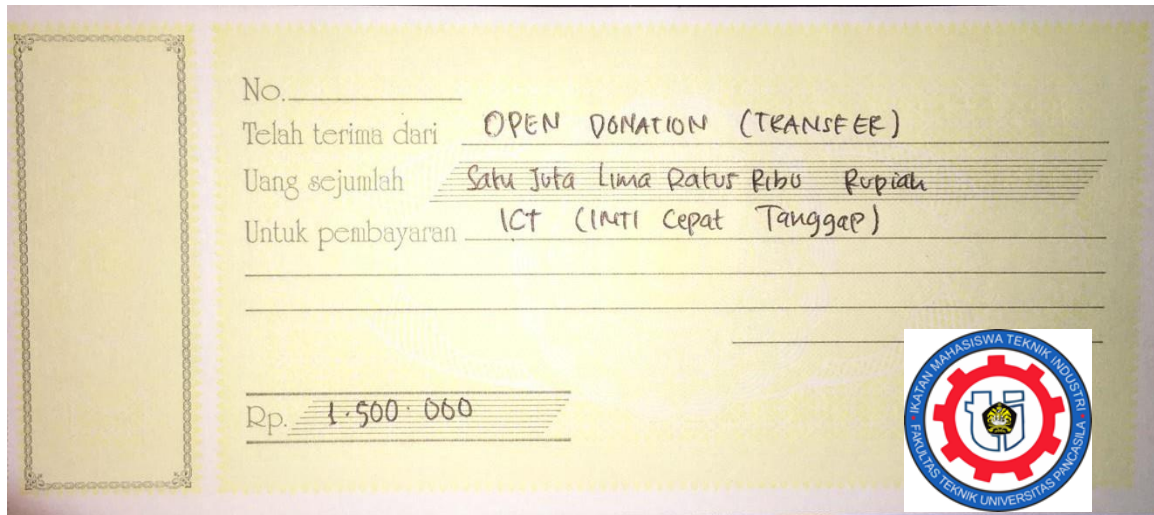 No.
Telah terima dari OPEN DONATION (TRANSFER)
Uang sejumlah Satu Juta Lima Ratus Ribu Rupiah
Untuk pembayaran ICT (INTI Cepat Tanggap)
Rp. 1.500.000
IKATAN MAHASISWA TEKNIK INDUSTRI
FAKULTAS TEKNIK UNIVERSITAS PANCASILA
ti